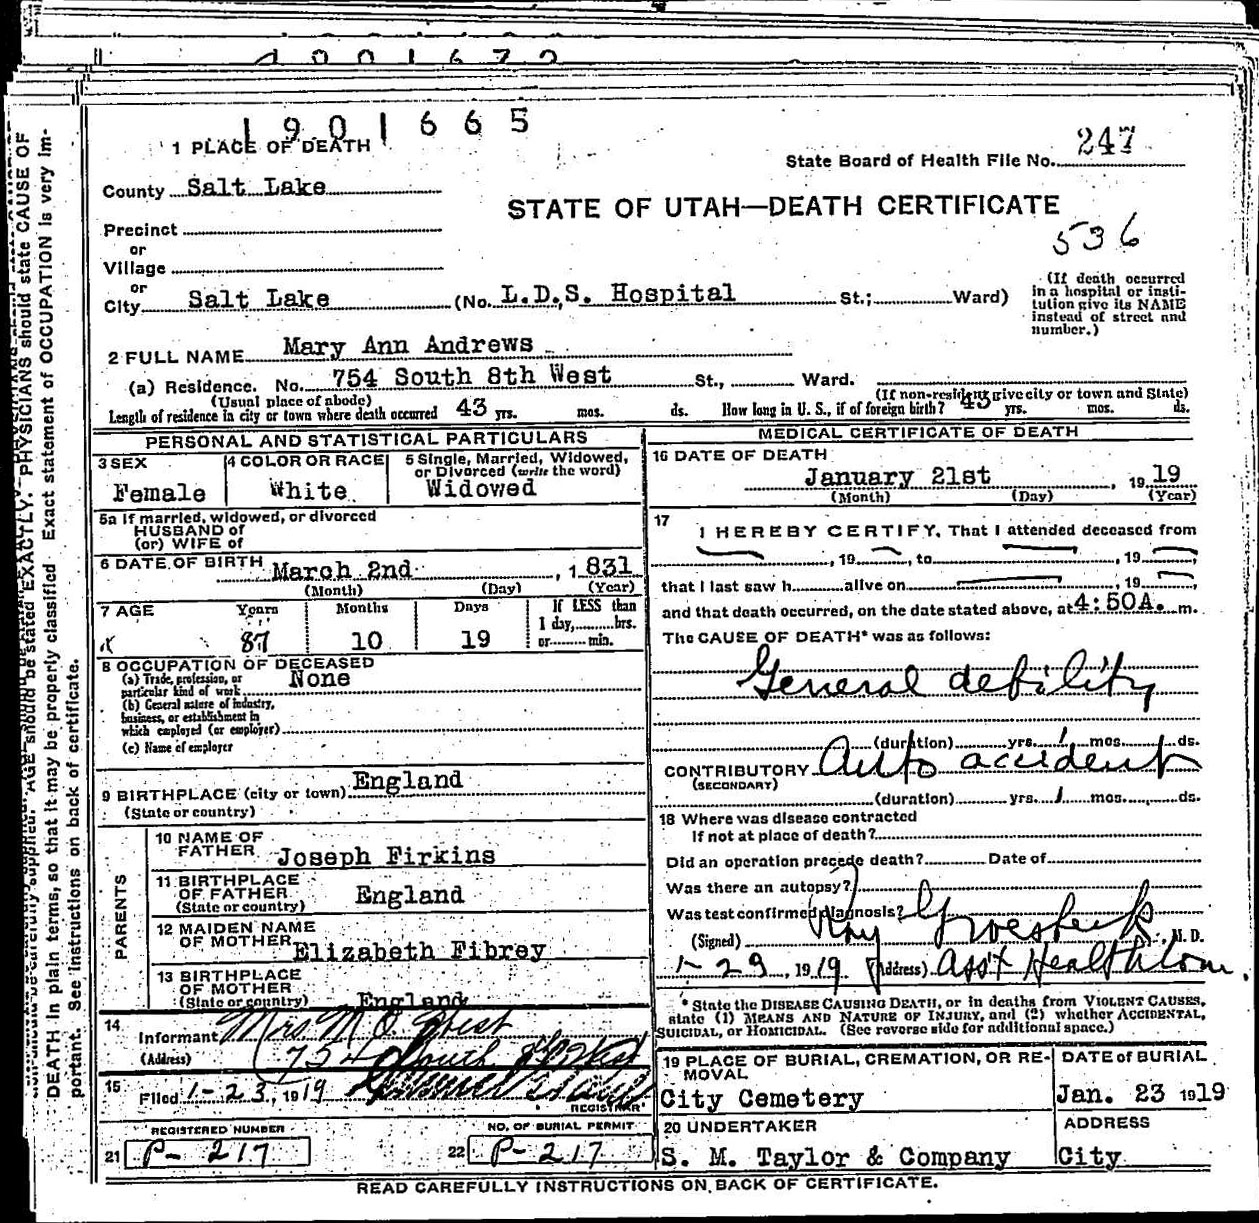 1901665
1 PLACE OF DEATH
State Board of Health File No. 247
County Salt Lake
STATE OF UTAH—DEATH CERTIFICATE
536
Precinct
or
Village
or
City Salt Lake (No. L.D.S. Hospital St.; Ward)
(If death occurred
in a hospital or insti-
tution give its NAME
instead of street and
number.)
2 FULL NAME Mary Ann Andrews
(a) Residence. No. 754 South 8th West St., Ward.
(Usual place of abode) (If non-resident give city or town and State)
Length of residence in city or town where death occurred 43 yrs. mos. ds. How long in U. S., if of foreign birth? 43 yrs. mos. ds.
PERSONAL AND STATISTICAL PARTICULARS
3 SEX
Female
4 COLOR OR RACE
White
5 Single, Married, Widowed,
or Divorced (write the word)
Widowed
5a If married, widowed, or divorced
HUSBAND of
(or) WIFE of
6 DATE OF BIRTH March 2nd, 1831
(Month) (Day) (Year)
7 AGE Years Months Days If LESS than
1 day, hrs.
87 10 19 or min.
8 OCCUPATION OF DECEASED
(a) Trade, profession, or
particular kind of work None
(b) General nature of industry,
business, or establishment in
which employed (or employer)
(c) Name of employer
9 BIRTHPLACE (city or town) England
(State or country)
PARENTS
10 NAME OF
FATHER Joseph Firkins
11 BIRTHPLACE
OF FATHER England
(State or country)
12 MAIDEN NAME
OF MOTHER Elizabeth Fibrey
13 BIRTHPLACE
OF MOTHER
(State or country) England
14
Informant Mrs. M. O. West
(Address) 754 South 8th West
15
Filed 1-23, 1919
REGISTRAR
REGISTERED NUMBER
21 P-217
NO. OF BURIAL PERMIT
22 P-217
MEDICAL CERTIFICATE OF DEATH
16 DATE OF DEATH
January 21st, 1919
(Month) (Day) (Year)
17
I HEREBY CERTIFY, That I attended deceased from
, 19 , to , 19 ,
that I last saw h alive on , 19 ,
and that death occurred, on the date stated above, at 4:50A. m.
The CAUSE OF DEATH* was as follows:
General debility
(duration) yrs. 1 mos. ds.
CONTRIBUTORY Auto accident
(SECONDARY)
(duration) yrs. 1 mos. ds.
18 Where was disease contracted
If not at place of death?
Did an operation precede death? Date of
Was there an autopsy?
Was test confirmed diagnosis?
(Signed) Roy Groesbeck M. D.
1-29, 1919 (Address) Ass't Health Com.
* State the DISEASE CAUSING DEATH, or in deaths from VIOLENT CAUSES,
state (1) MEANS AND NATURE OF INJURY, and (2) whether ACCIDENTAL,
SUICIDAL, or HOMICIDAL. (See reverse side for additional space.)
19 PLACE OF BURIAL, CREMATION, OR RE-
MOVAL
City Cemetery
DATE of BURIAL
Jan. 23 1919
20 UNDERTAKER
S. M. Taylor & Company
ADDRESS
City
READ CAREFULLY INSTRUCTIONS ON BACK OF CERTIFICATE.
AGE should be stated EXACTLY. PHYSICIANS should state CAUSE OF
DEATH in plain terms, so that it may be properly classified Exact statement of OCCUPATION is very im-
portant. See instructions on back of certificate.